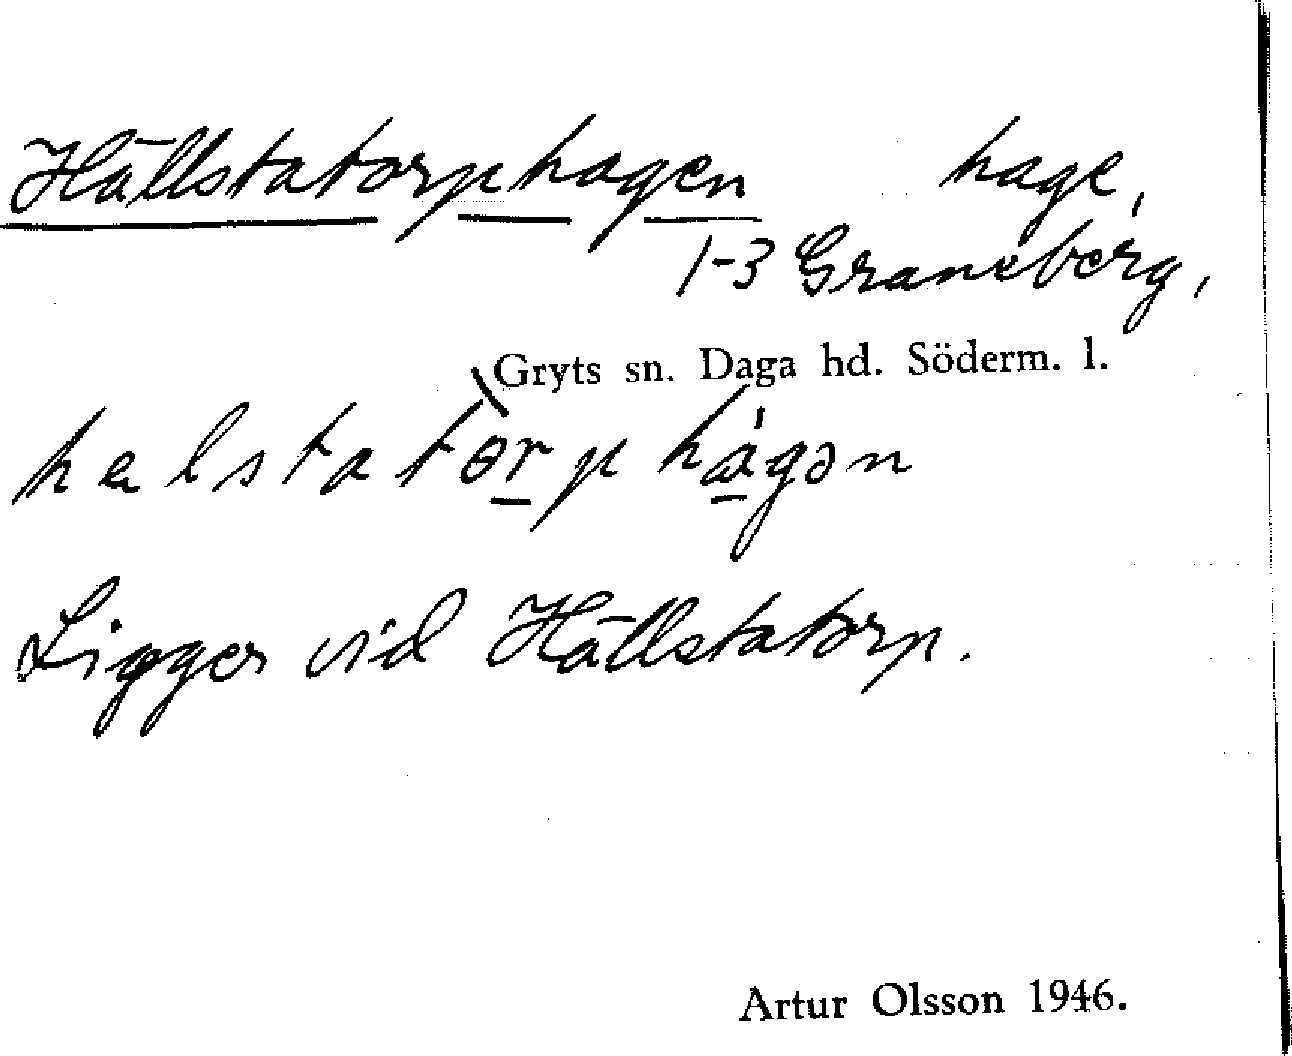 Hällstatorphagen hage,
1-3 Graneberg,
Gryts sn. Daga hd. Söderm. l.
helstatòrp hágən
Ligger vid Hällstatorp.
Artur Olsson 1946.